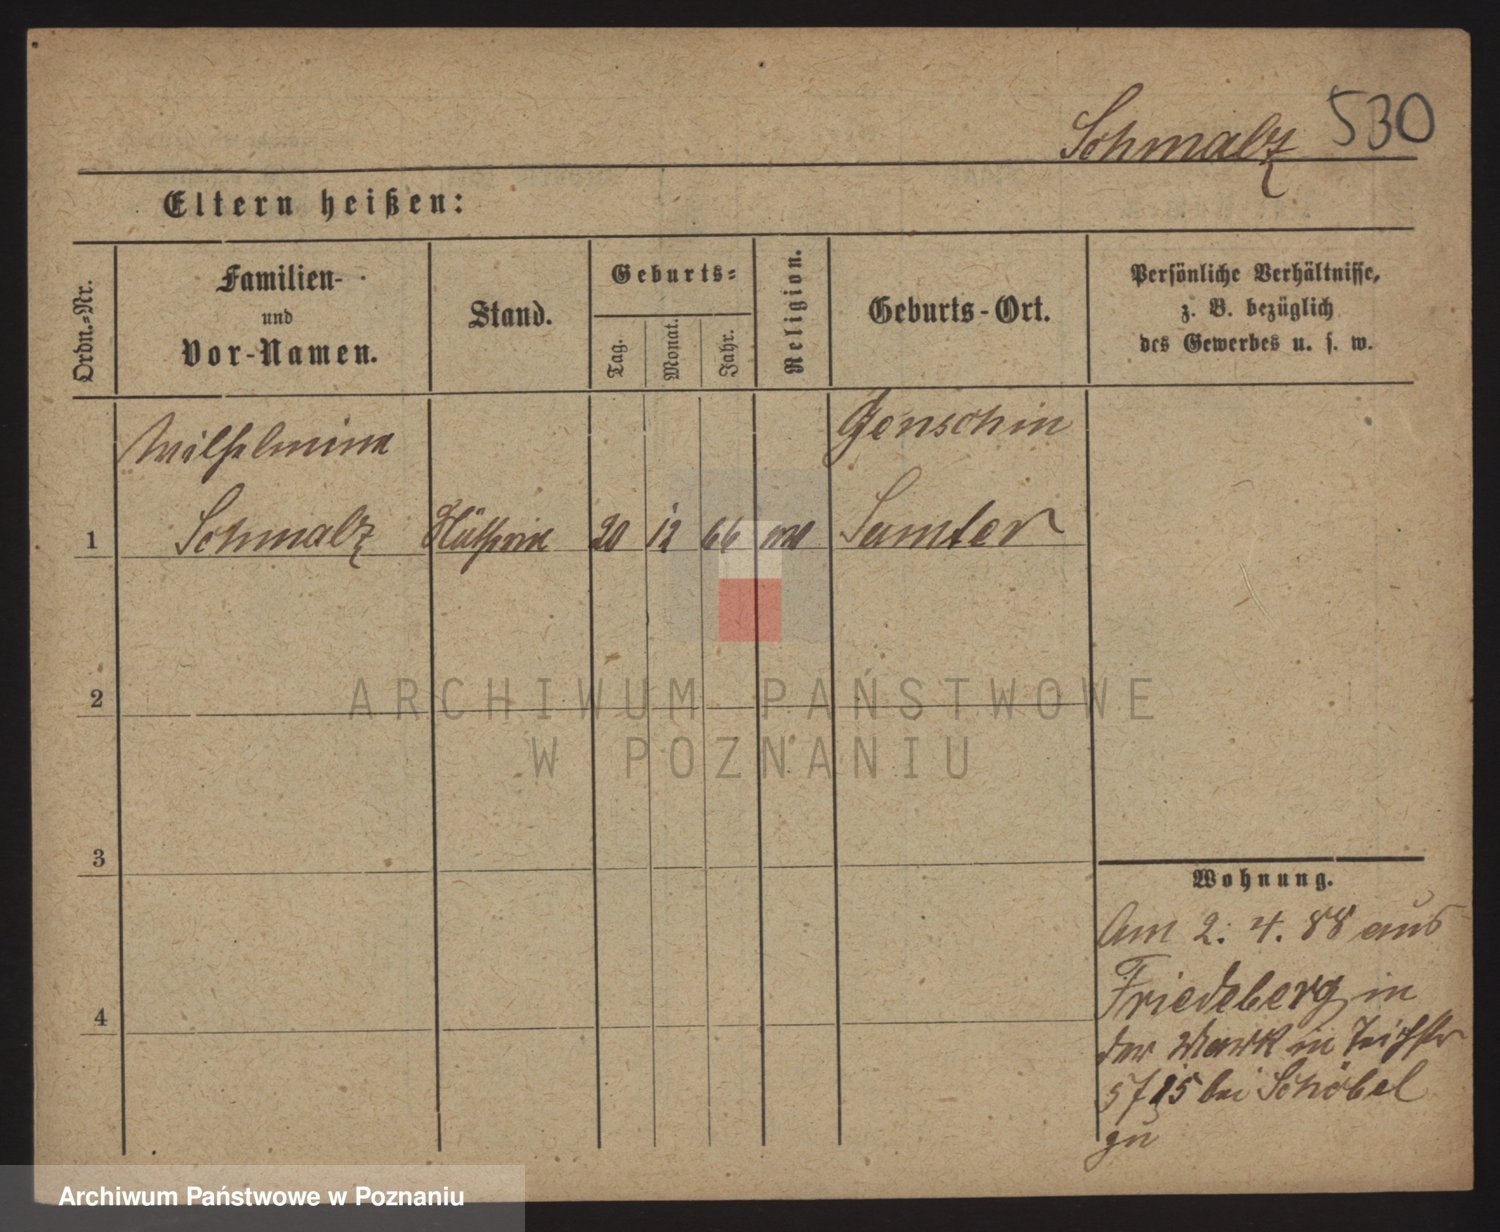 Schmalz 530
Eltern heißen:
Ordn.=Nr.
Familien-
und
Vor-Namen.
Stand.
Geburts=
Tag.
Monat.
Jahr.
Religion.
Geburts-Ort.
Persönliche Verhältnisse,
z. B. bezüglich
des Gewerbes u. s. w.
Wilhelmine
Genschin
1 Schmalz 20 12 66 Samter
2
3
4
Wohnung.
Am 2. 4. 88 aus
Friedeberg in
der Mark in Teichstr
5 bei Schöbel
zu
ARCHIWUM PAŃSTWOWE
W POZNANIU
Archiwum Państwowe w Poznaniu